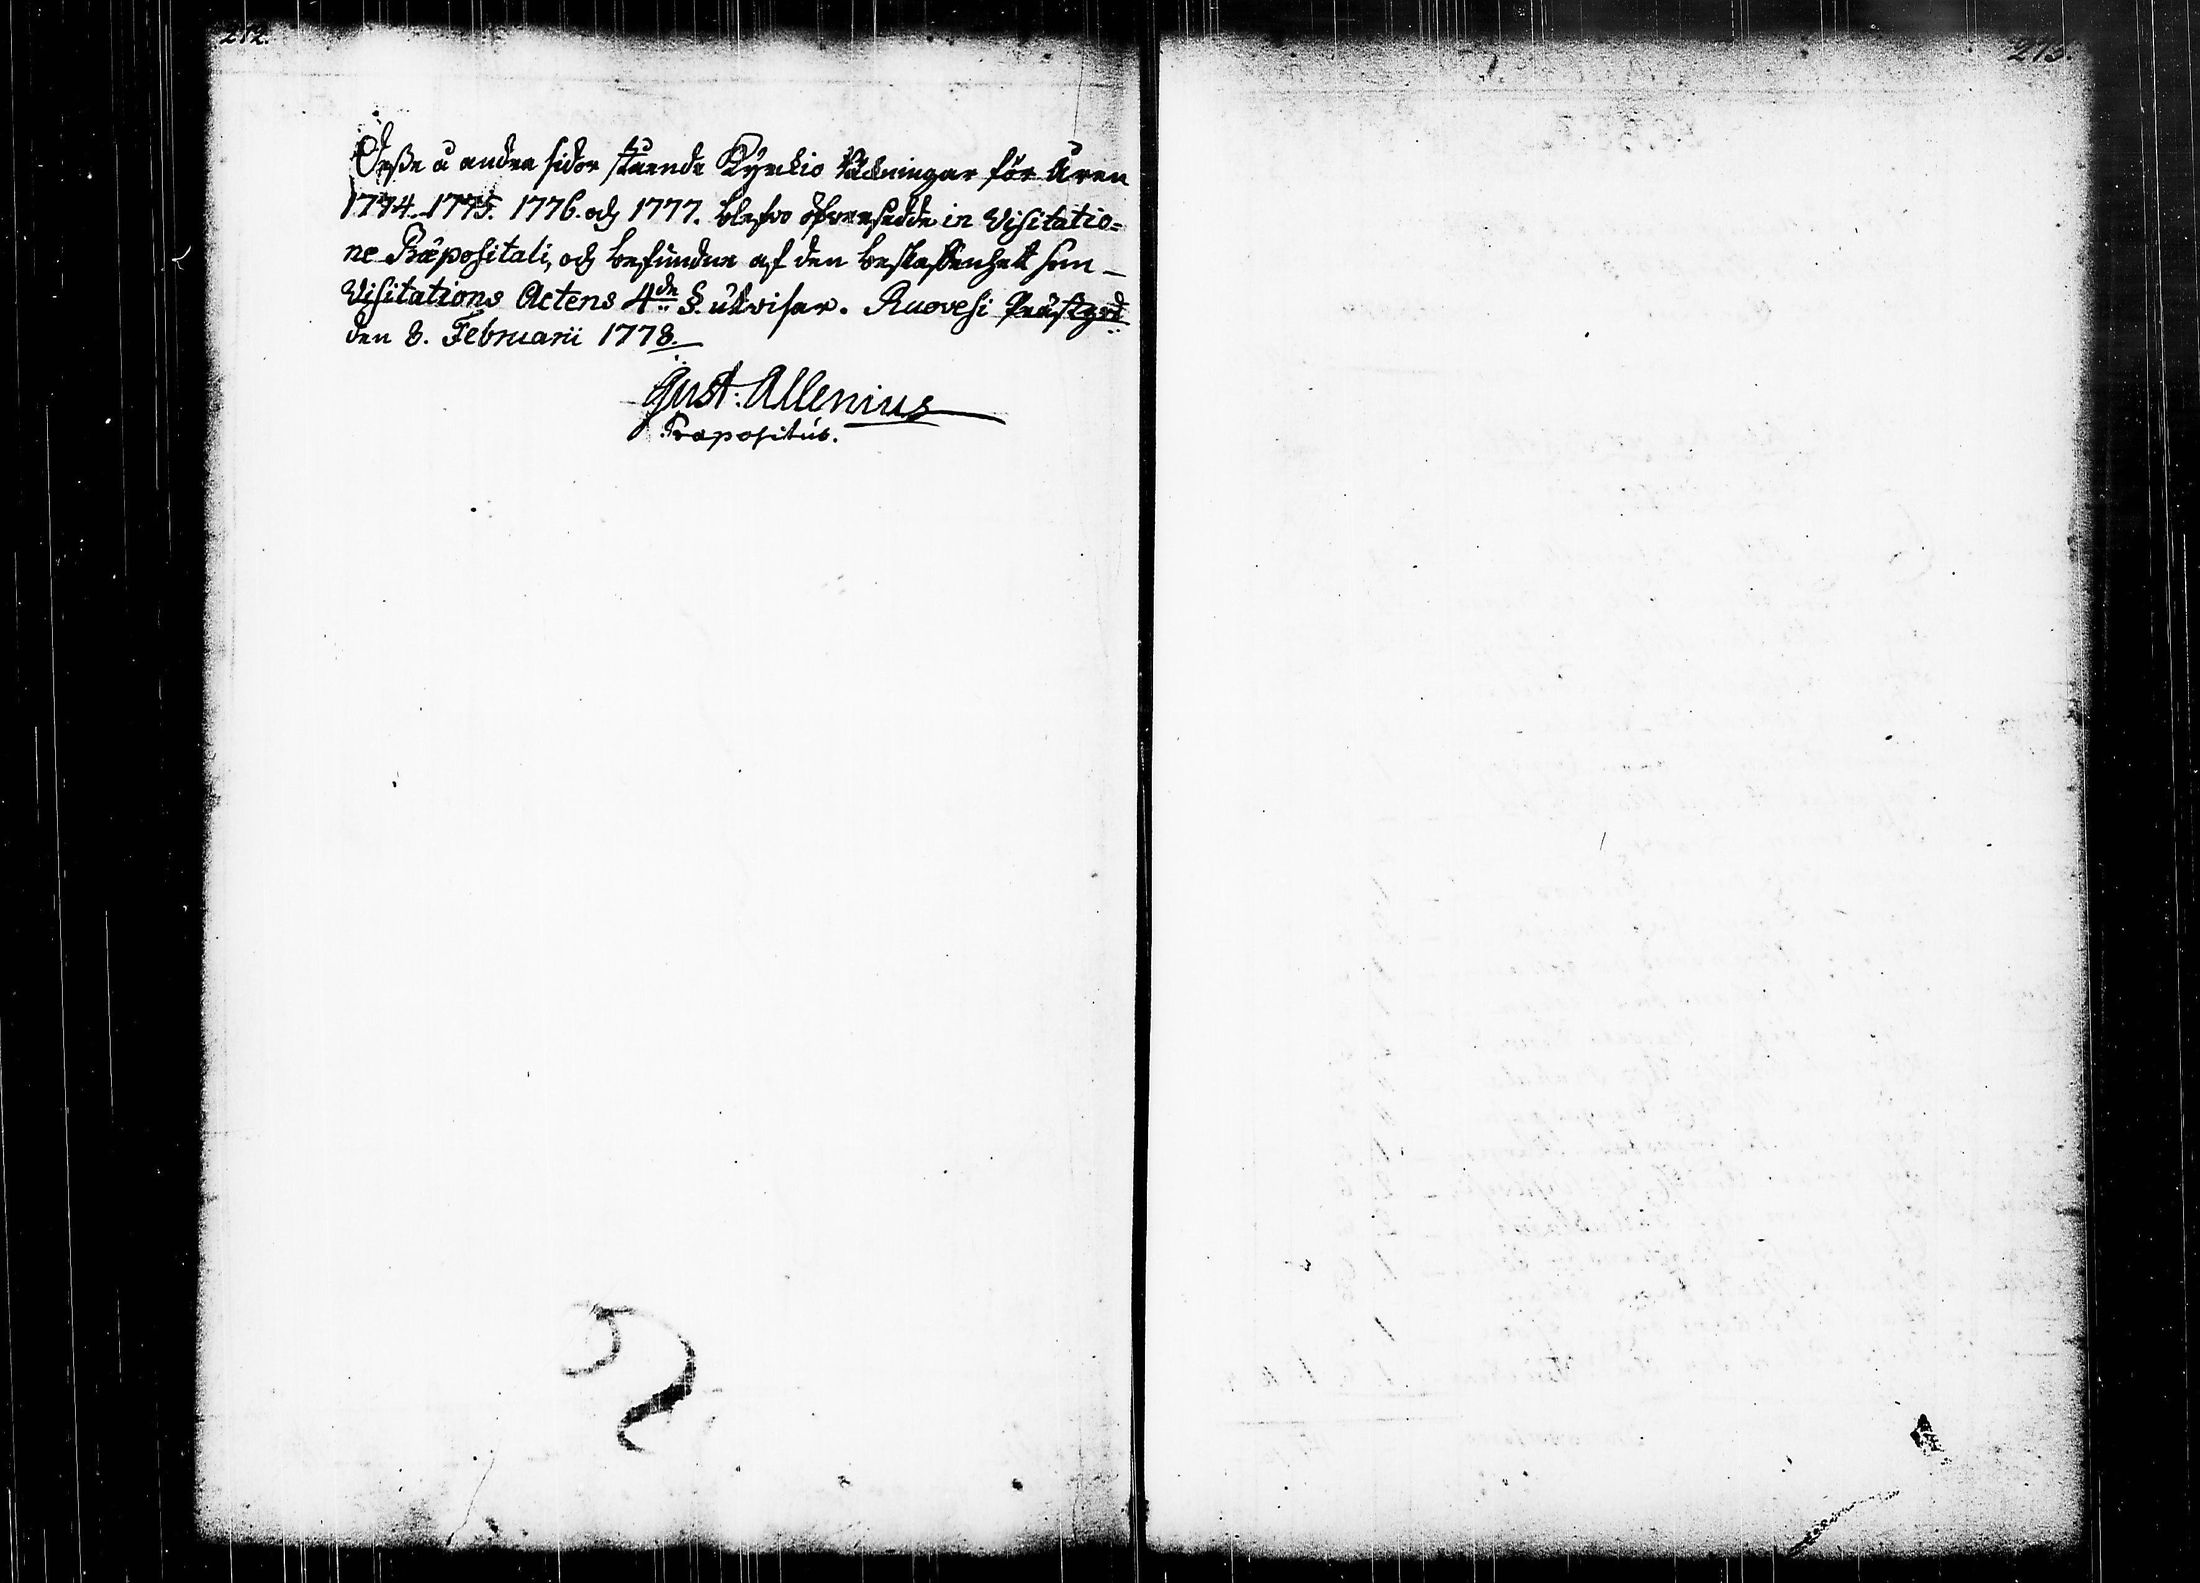 212.
Desße å andra sidor stående Kyrckio Räckningar för Åren
1774. 1775. 1776. och 1777. blefwo öfwersedde in Visitatio=
ne Præpositali, och befundne af den beskaffenhet som
Visitations Actens 4de §. utwisar. Ruovesi Prästgrd
den 8. Februarii 1778.
Gust. Allenius
Præpositus.
213.